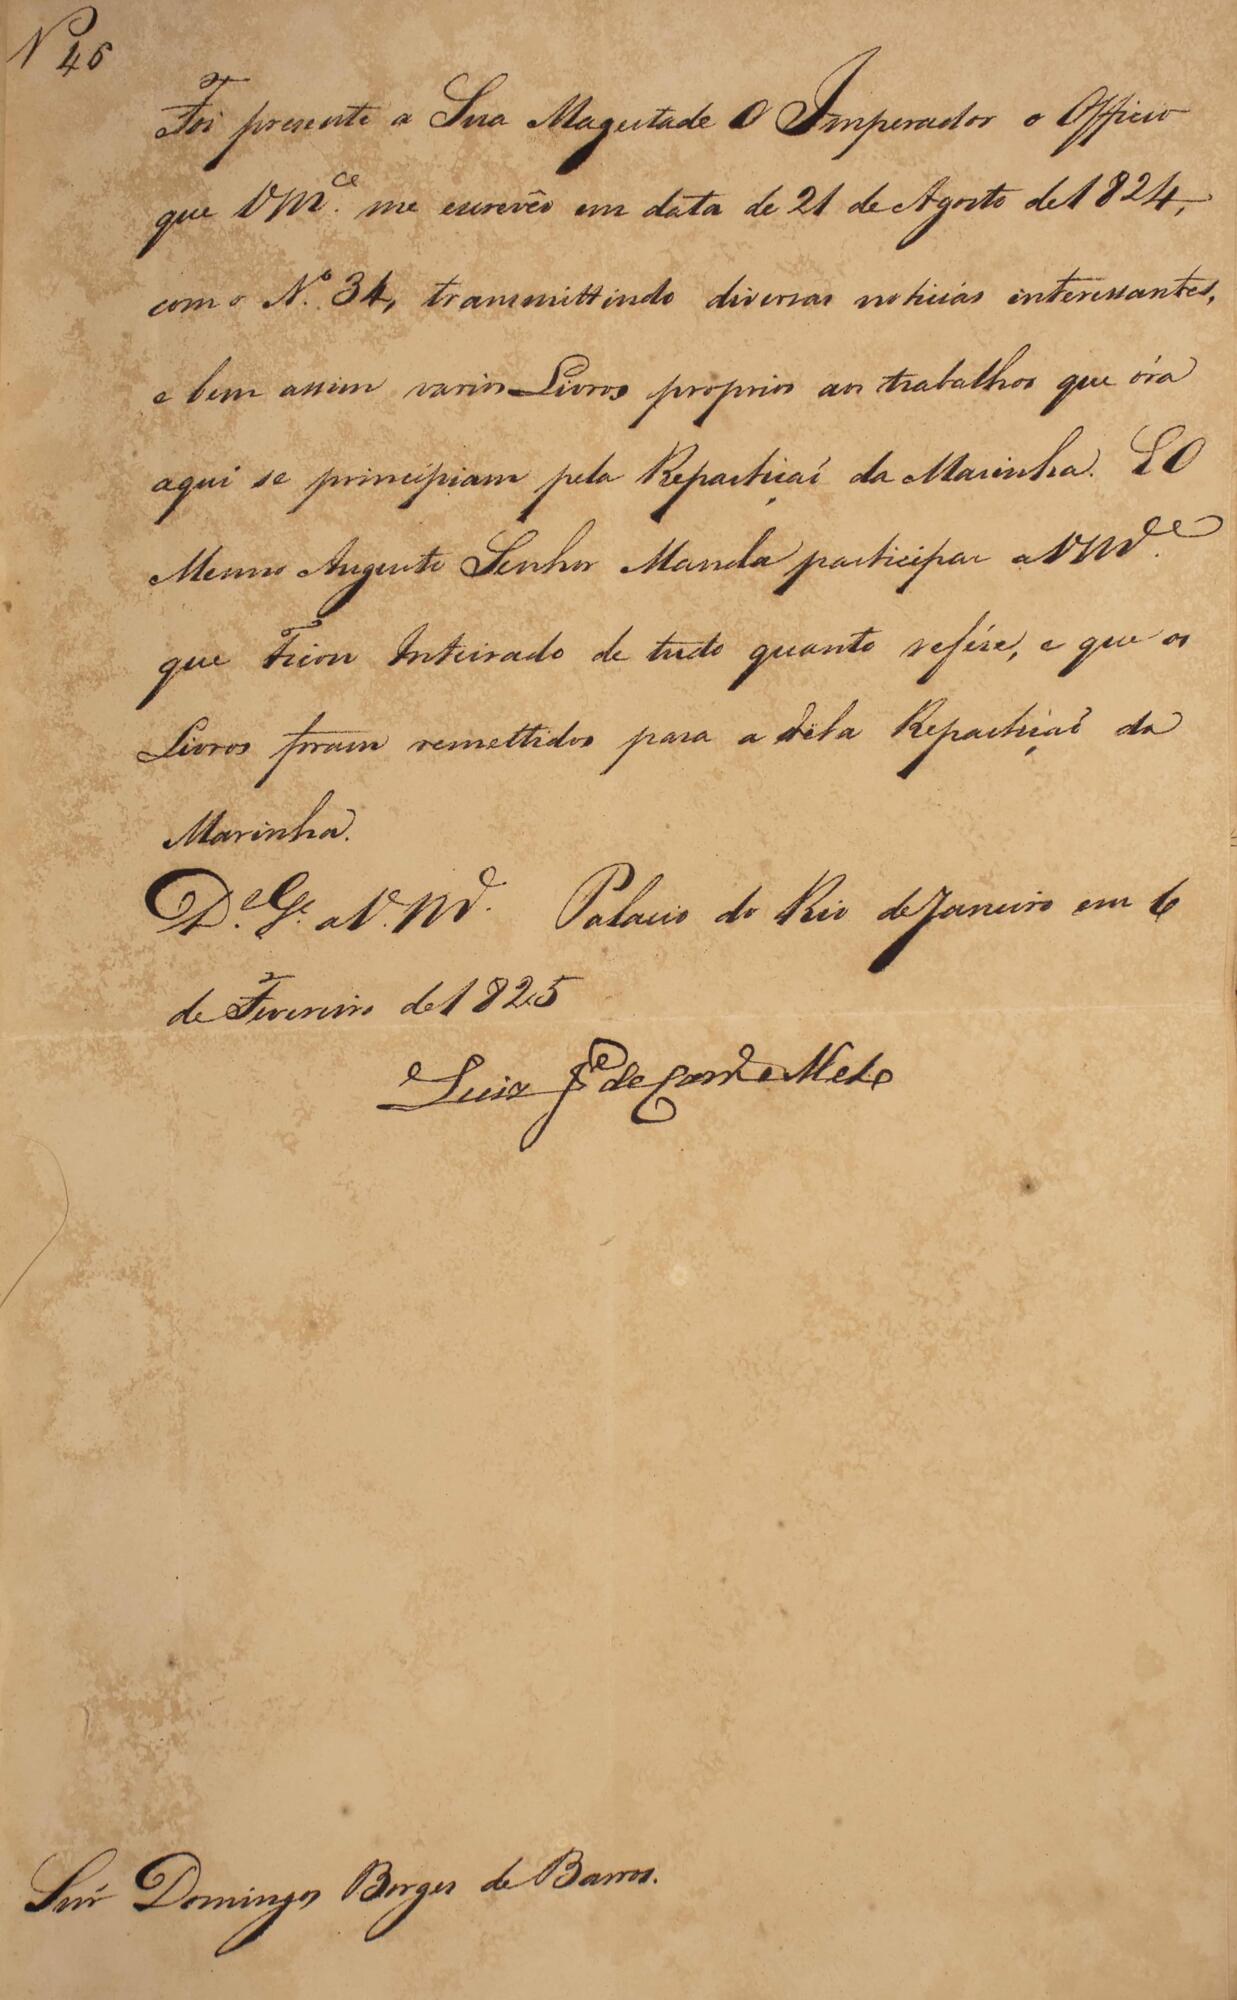 Nº 46
Foi presente a Sua Magestade O Imperador o Officio
que VM.ce me escrevêo em data de 21 de Agosto de 1824,
com o N.º 34, transmittindo diversas noticias interessantes,
e bem assim varios Livros proprios aos trabalhos que óra
aqui se principiam pela Repartiçaõ da Marinha. E O
Mesmo Augusto Senhor Manda participar a VM.ce
que Ficou Inteirado de tudo quanto refére, e que os
Livros foram remettidos para a dita Repartiçaõ da
Marinha.
D.e G.e a V. M.ce Palacio do Rio de Janeiro em 6
de Fevereiro de 1825
Luiz Je de Carvo e Mello
Snr Domingos Borges de Barros.